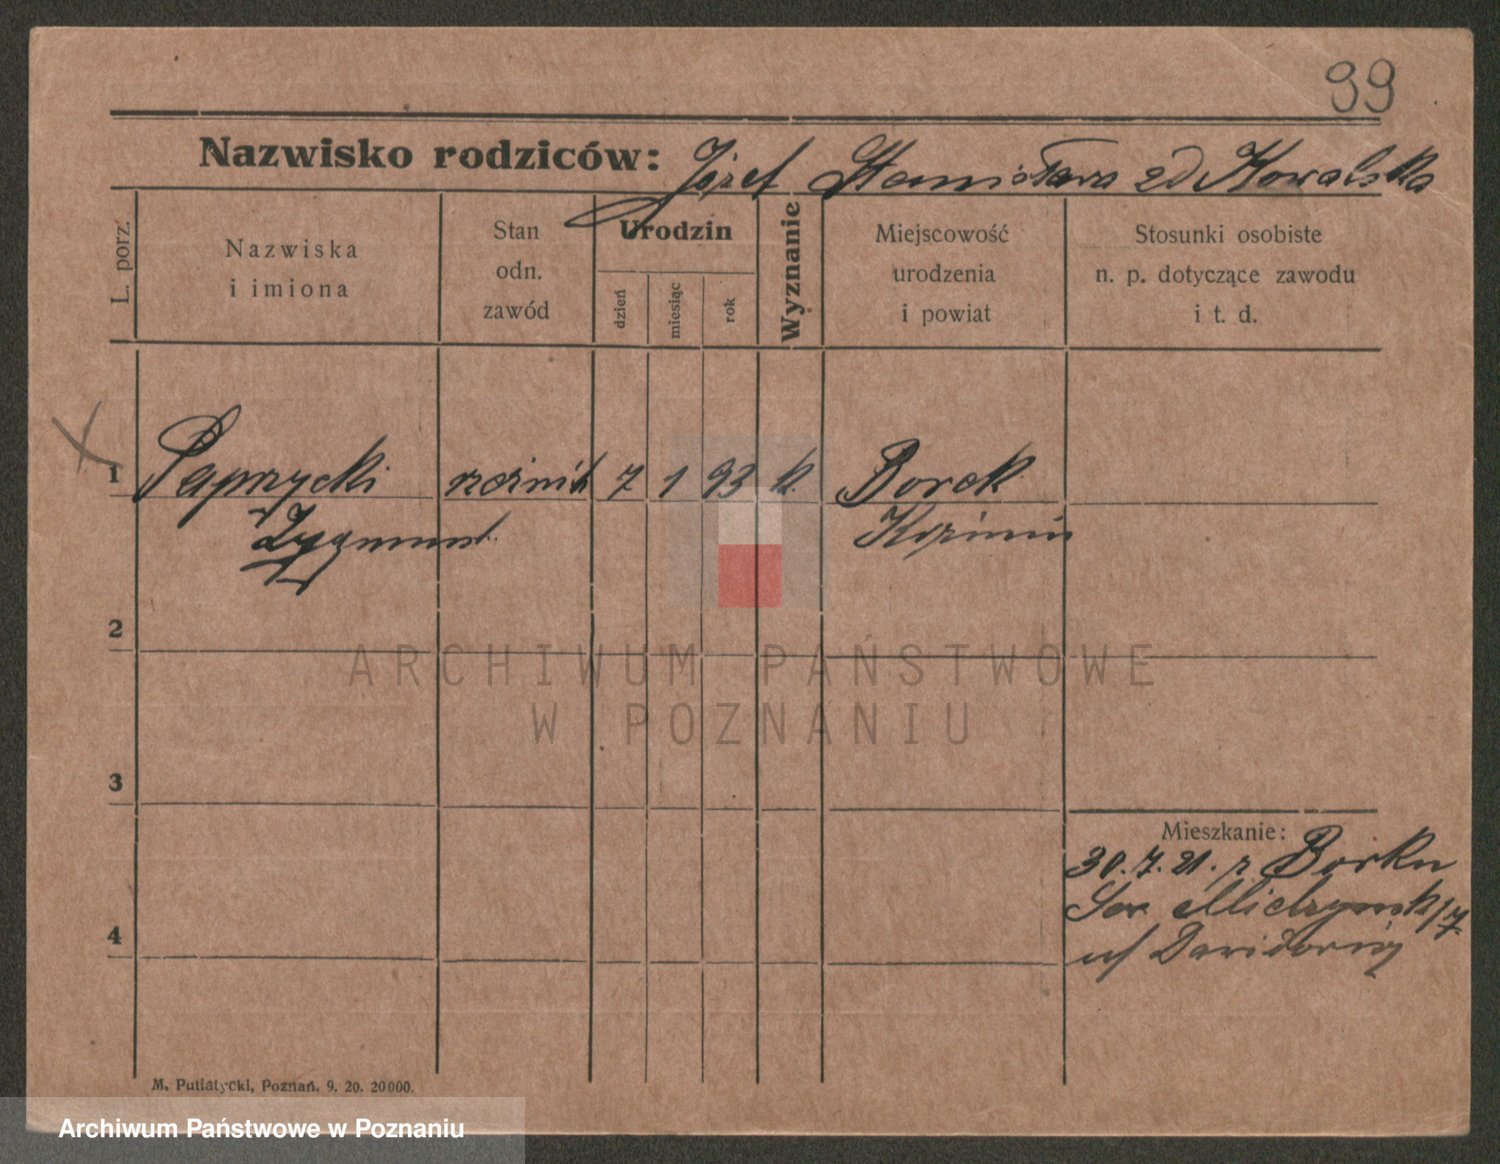 99
Nazwisko rodziców: Józef Stanisława zd Kowalska
L. porz.
Nazwiska
i imiona
Stan
odn.
zawód
Urodzin
dzień
miesiąc
rok
Wyznanie
Miejscowość
urodzenia
i powiat
Stosunki osobiste
n. p. dotyczące zawodu
i t. d.
1 Paprzycki rzeźnik 7 1 93 k. Borek
Zygmunt Koźmin
2
ARCHIWUM PAŃSTWOWE
W POZNANIU
3
Mieszkanie:
30.7.21. z Borku
Sew. Mielżyńsk/7
4
u/
M. Putiatycki, Poznań. 9. 20. 20000.
Archiwum Państwowe w Poznaniu